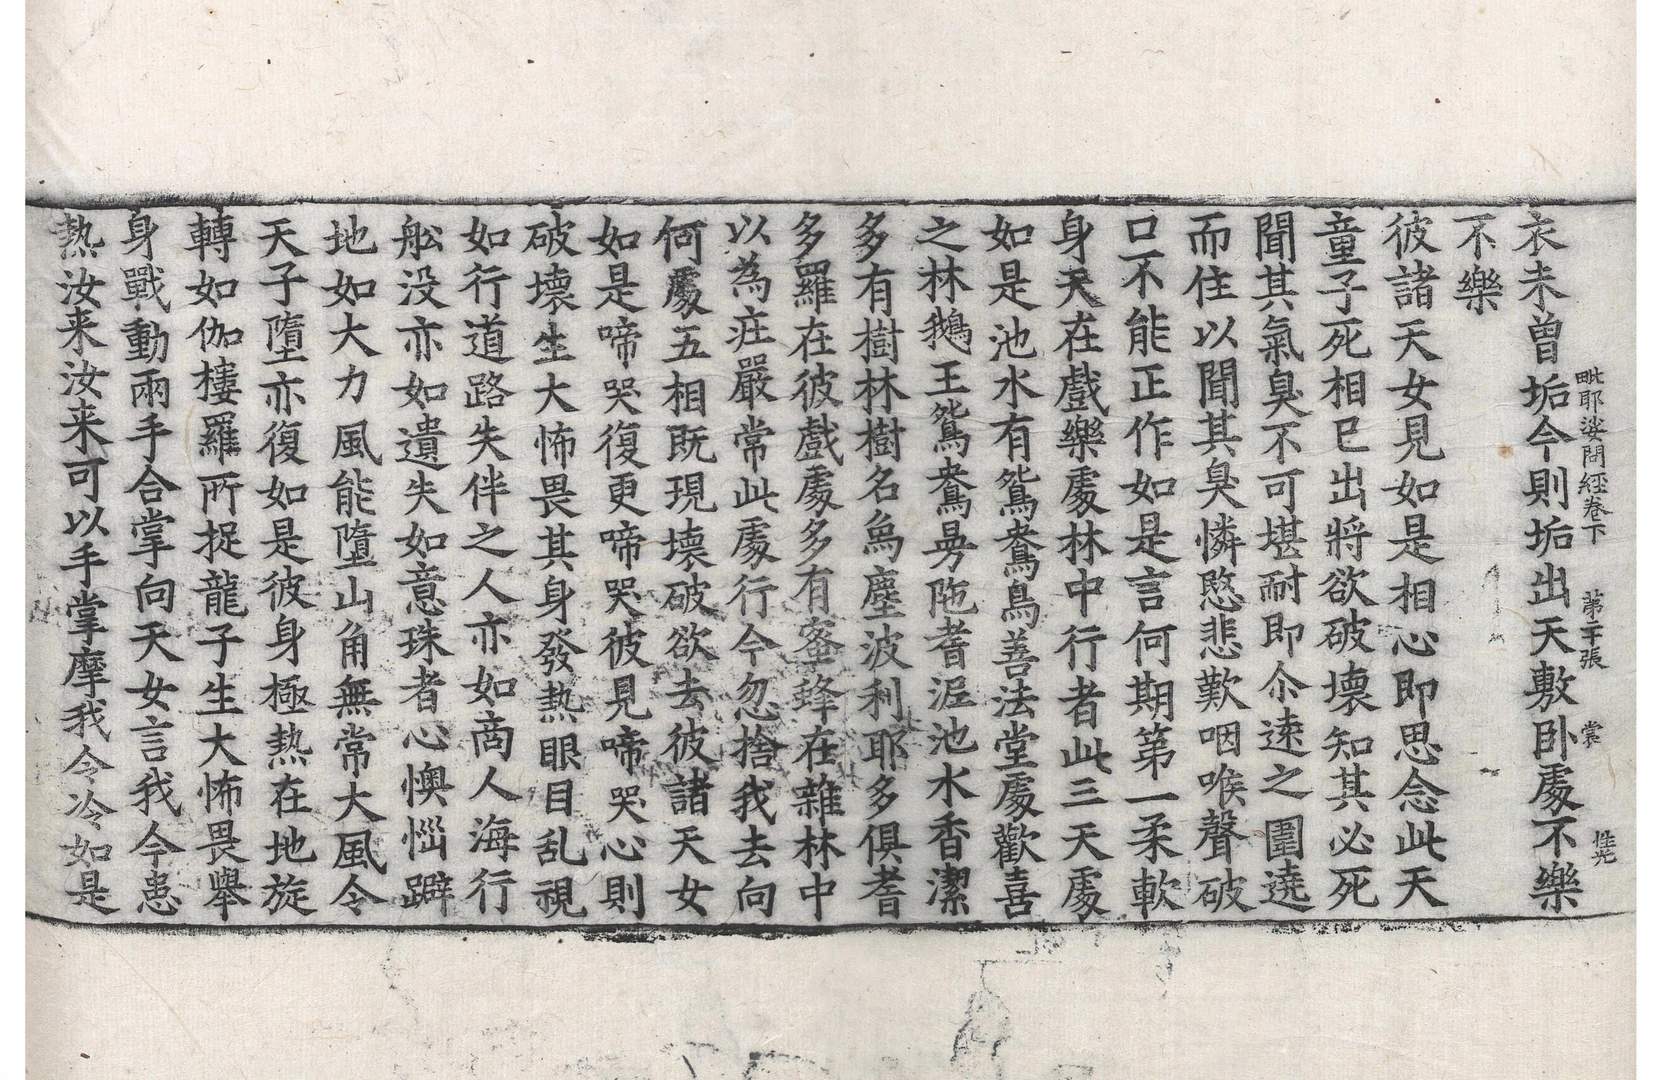 毗耶娑問經卷下 第二十張 裳
衣未曾垢今則垢出天敷卧處不樂
不樂
彼諸天女見如是相心即思念此天
童子死相已出將欲破壞知其必死
聞其氣臭不可堪耐即尒遠之圍遶
而住以聞其臭憐愍悲歎咽喉聲破
口不能正作如是言何期第一柔軟
身天在戲樂處林中行者此三天處
如是池水有鴛鴦鳥善法堂處歡喜
之林鵝王鴛鴦曼陁耆泥池水香潔
多有樹林林樹名為塵波利耶多俱耆
多羅在彼戲處多有蜜蜂在雜林中
以為庄嚴常此處行今忽捨我去向
何處五相既現壞破欲去彼諸天女
如是啼哭復更啼哭彼見啼哭心則
破壞生大怖畏其身發熱眼目乱視
如行道路失伴之人亦如商人海行
舩没亦如遺失如意珠者心懊惱躃
地如大力風能墮山角無常大風令
天子墮亦復如是彼身極熱在地旋
轉如伽樓羅所捉龍子生大怖畏舉
身戰動兩手合掌向天女言我今患
熱汝来汝来可以手掌摩我令冷如是